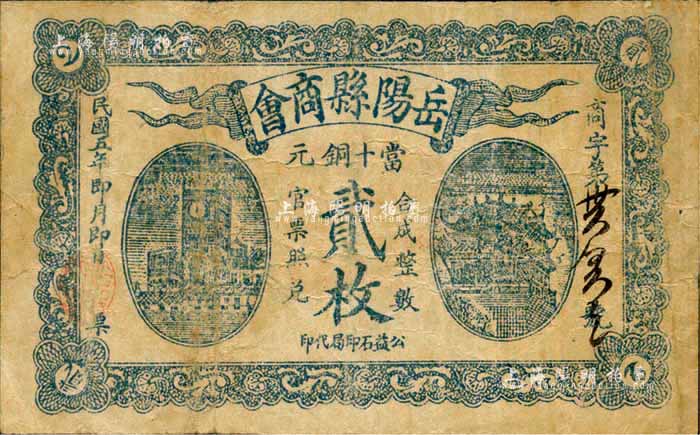 岳陽縣商會
當十銅元
貳枚
合成整數
官票照兌
公益石印局代印
商字第
號
民國五年即月即日
票
上海陽明拍賣
上海陽明拍賣
上海陽明拍賣